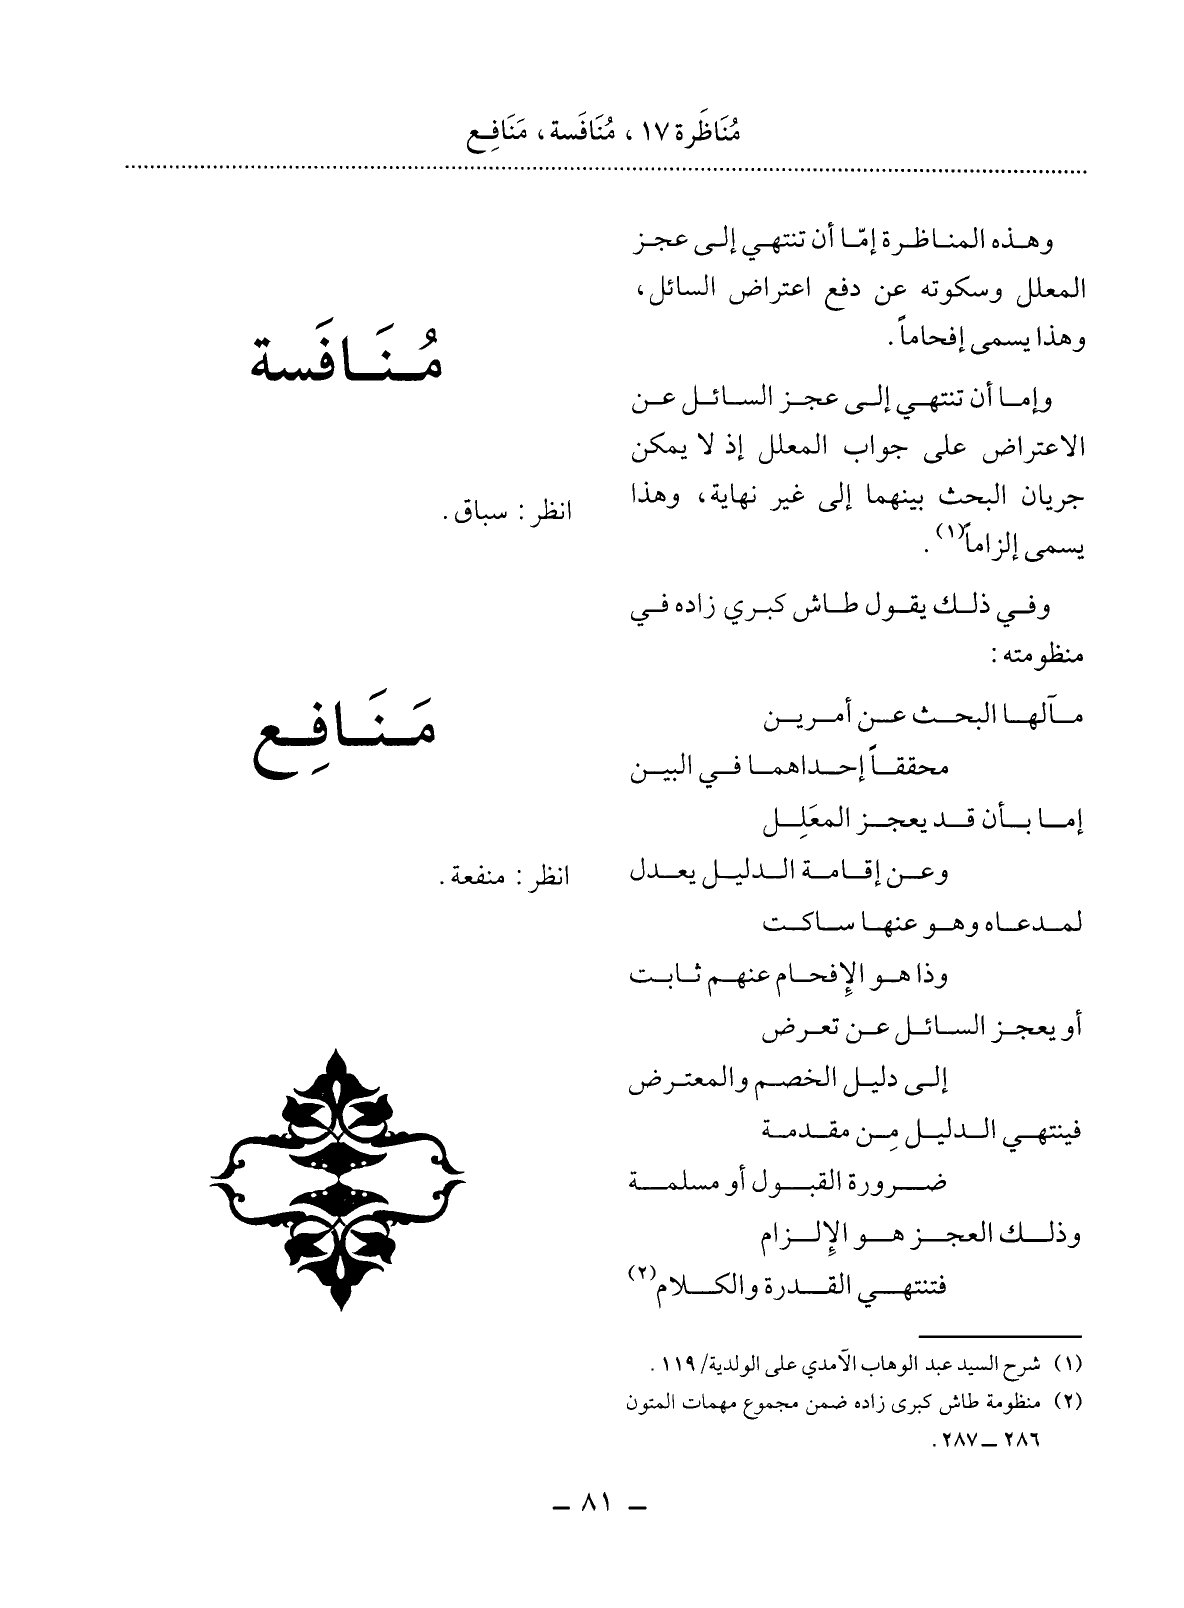 مُنَاظَرة ١٧ ، مُنَافَسة ، مَنَافِع
وهذه المناظرة إمّا أن تنتهي إلى عجز
المعلل وسكوته عن دفع اعتراض السائل،
وهذا يسمى إفحاماً .
وإما أن تنتهي إلى عجز السائل عن
الاعتراض على جواب المعلل إذ لا يمكن
جريان البحث بينهما إلى غير نهاية، وهذا
يسمى إلزاماً(١) .
وفي ذلك يقول طاش كبري زاده في
منظومته :
مآلها البحث عن أمرين
محققاً إحداهما في البين
إما بأن قد يعجز المعَلِل
وعن إقامة الدليل يعدل
لمدعاه وهو عنها ساكت
وذا هو الإفحام عنهم ثابت
أو يعجز السائل عن تعرض
إلى دليل الخصم والمعترض
فينتهي الدليل مِن مقدمة
ضرورة القبول أو مسلمة
وذلك العجز هو الإلزام
فتنتهي القدرة والكلام(٢)
(١) شرح السيد عبد الوهاب الآمدي على الولدية/ ١١٩ .
(٢) منظومة طاش كبرى زاده ضمن مجموع مهمات المتون
٢٨٦ – ٢٨٧ .
مُنَافَسة
انظر : سباق .
مَنَافِع
انظر : منفعة .
– ٨١ –